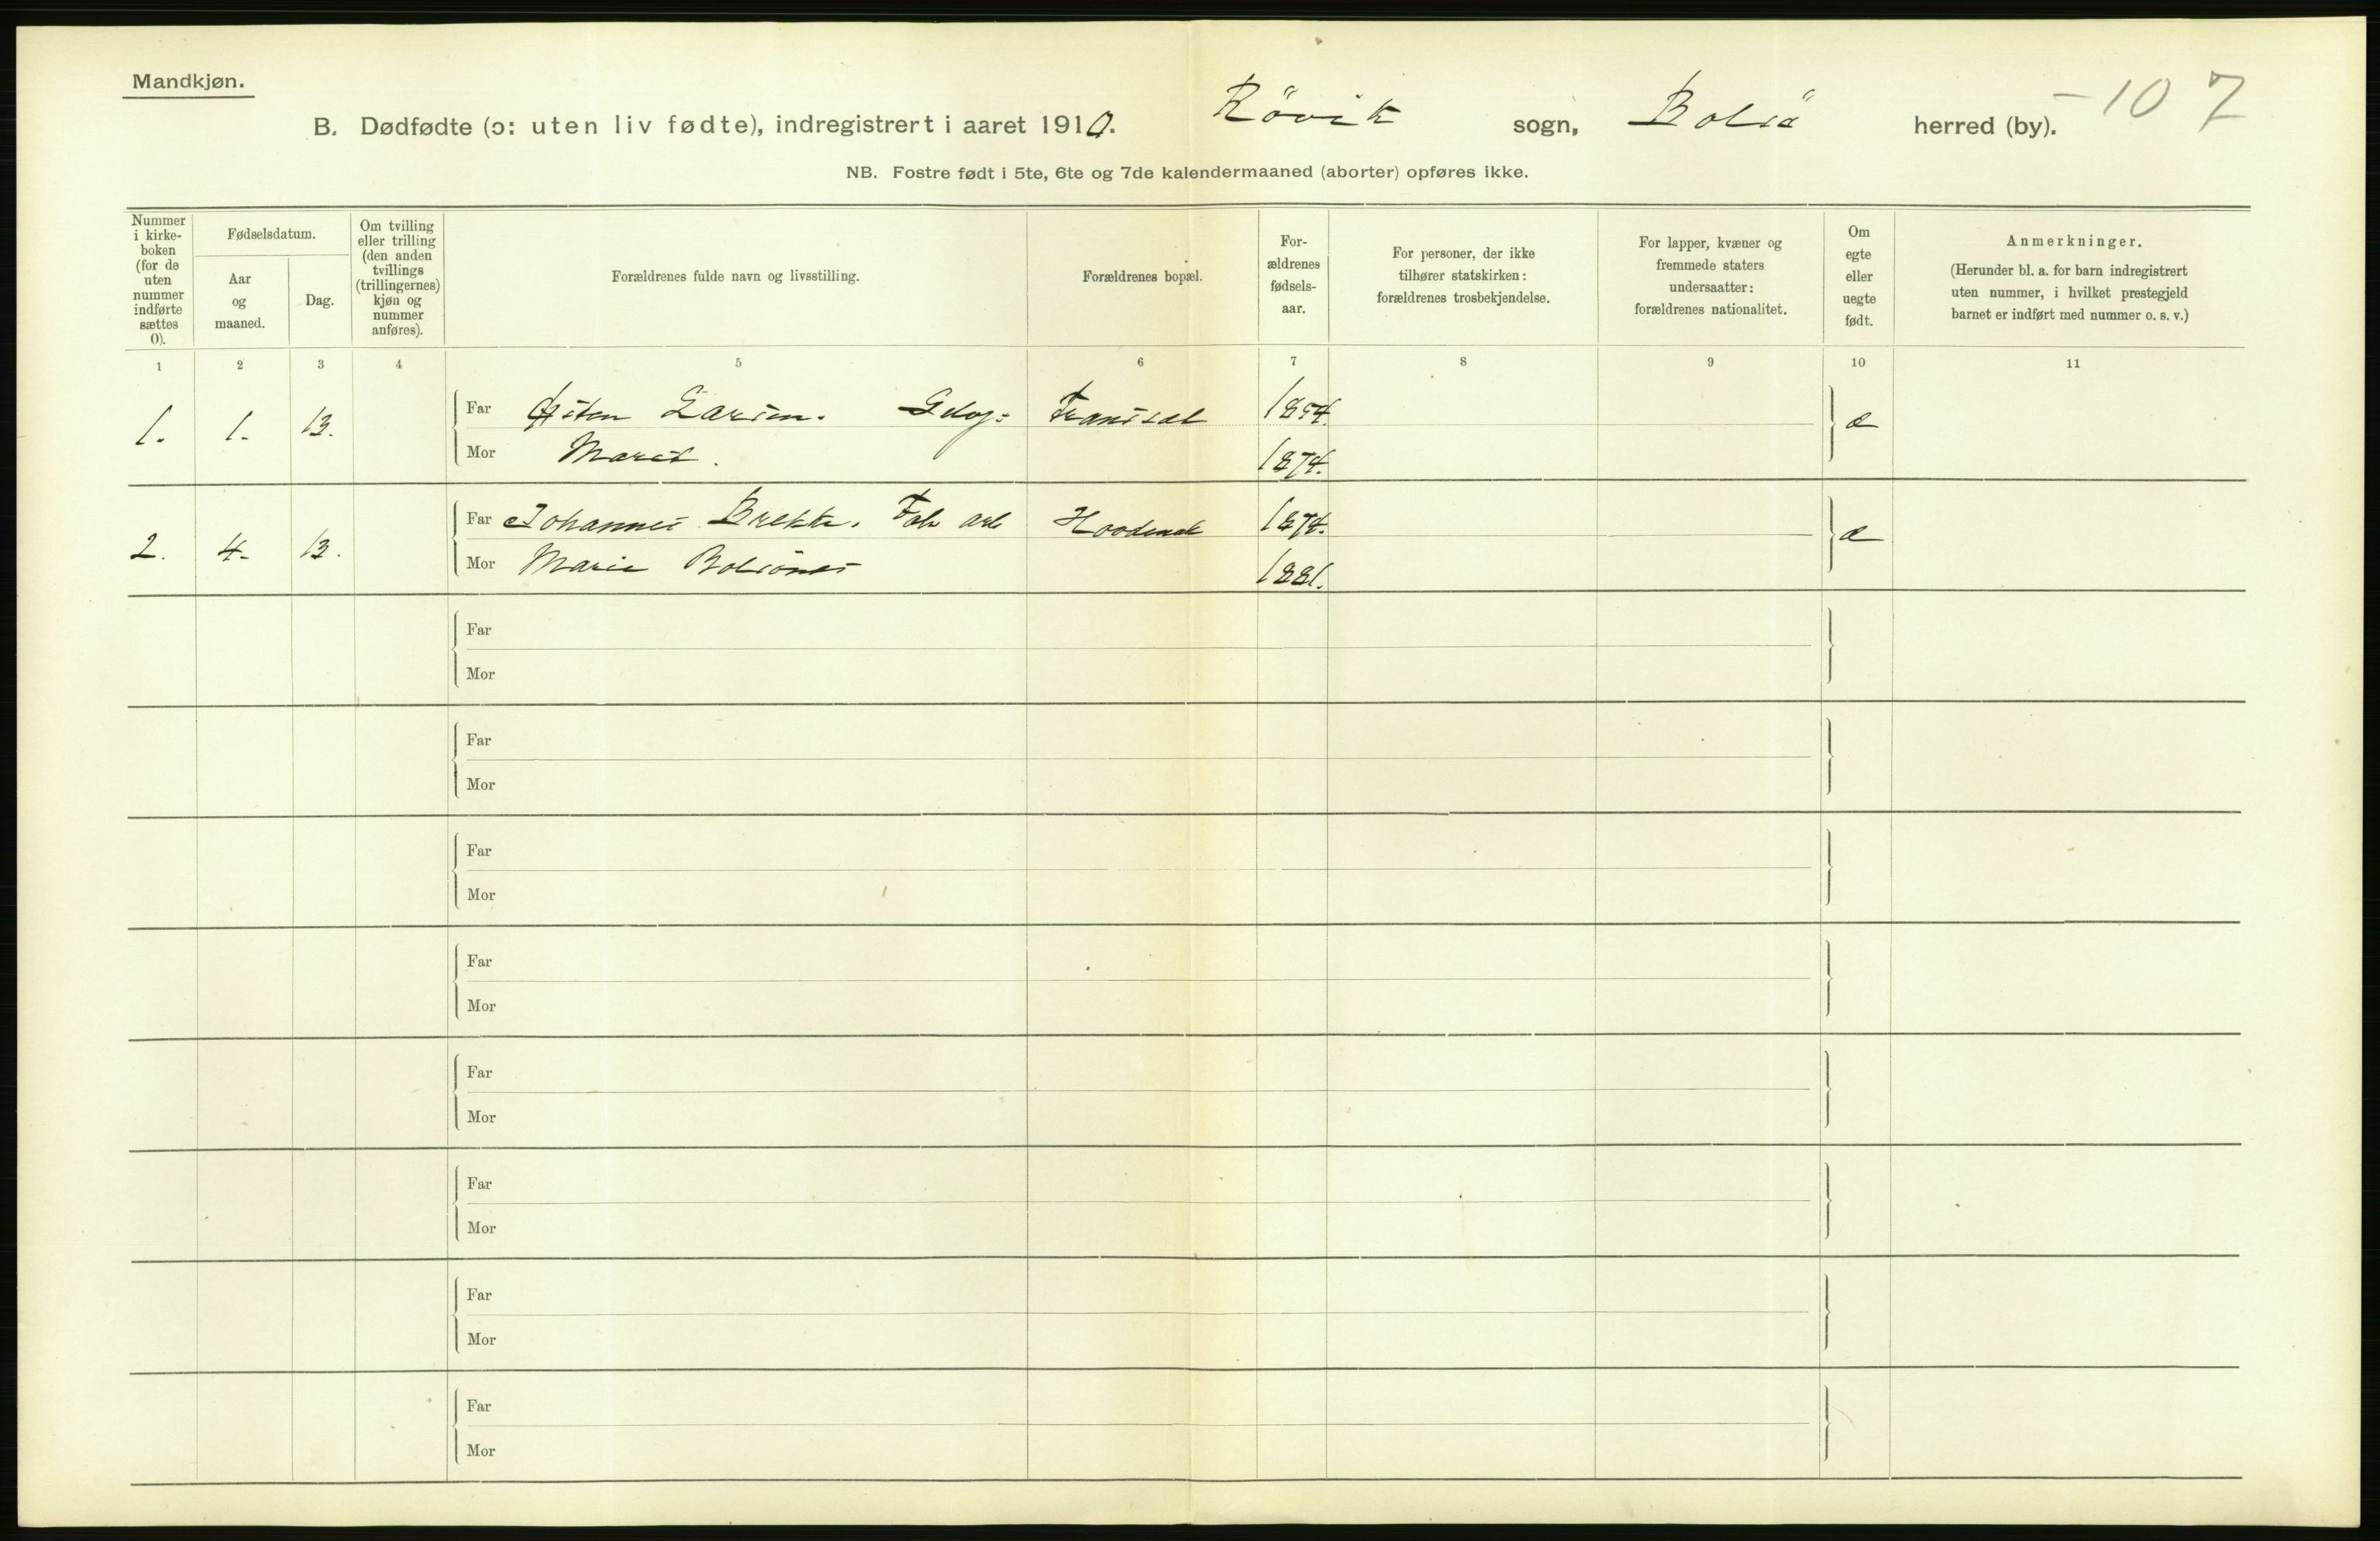 Mandkjøn.
B. Dødfødte (ɔ: uten liv fødte), indregistrert i aaret 1910. Rövik sogn, Bolsö herred (by). -10 7
NB. Fostre født i 5te, 6te og 7de kalendermaaned (aborter) opføres ikke.
Nummer i kirke-boken (for de uten nummer indførte sættes 0).
Fødselsdatum.
Aar og maaned.
Dag.
Om tvilling eller trilling (den anden tvillings (trillingernes) kjøn og nummer anføres).
Forældrenes fulde navn og livsstilling.
Forældrenes bopæl.
For-ældrenes fødsels-aar.
For personer, der ikke tilhører statskirken: forældrenes trosbekjendelse.
For lapper, kvæner og fremmede staters undersaatter: forældrenes nationalitet.
Om egte eller uegte født.
Anmerkninger.
(Herunder bl. a. for barn indregistrert uten nummer, i hvilket prestegjeld barnet er indført med nummer o. s. v.)
1 2 3 4 5 6 7 8 9 10 11
1. 1. 13. Far Østen Larsen. 1854. æ
Mor Marit. 1874.
2. 4. 13. Far Johannes Brekke. Fab arb 1874. æ
Mor Marie Bolsönes 1881.
Far
Mor
Far
Mor
Far
Mor
Far
Mor
Far
Mor
Far
Mor
Far
Mor
Far
Mor